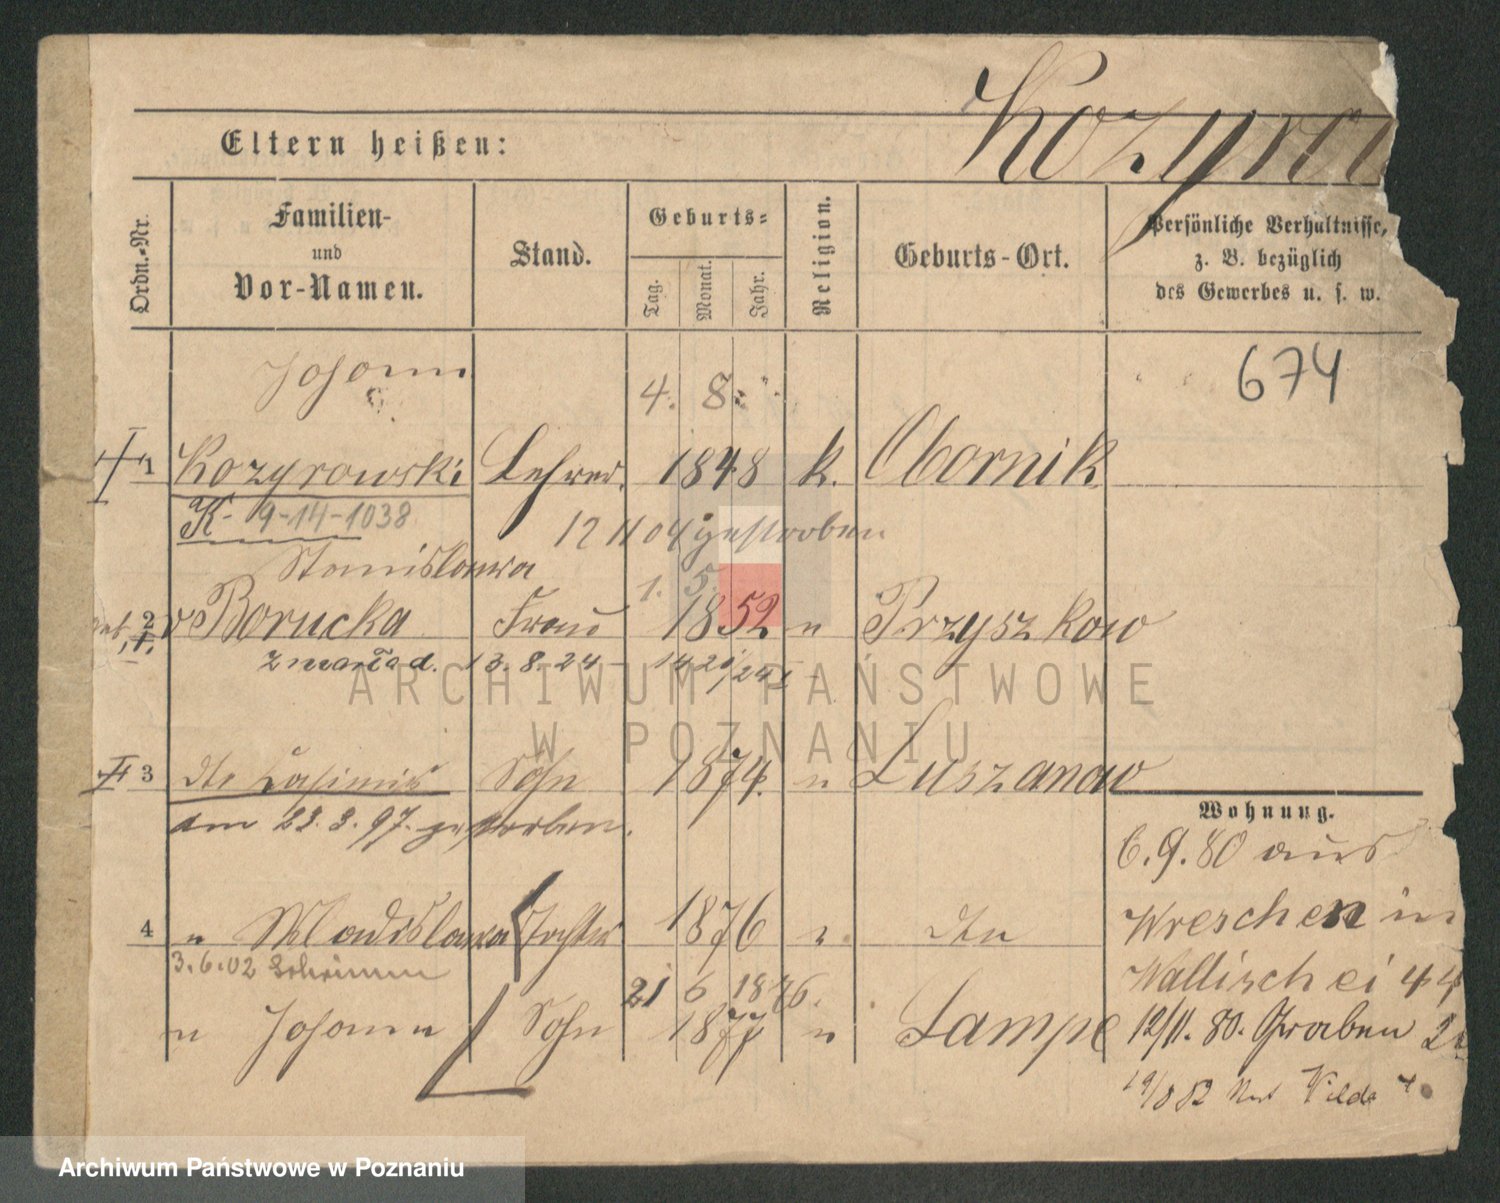 Kozyro
Eltern heißen:
Ordn.-Nr.
Familien-
und
Vor-Namen.
Stand.
Geburts-
Tag.
Monat.
Jahr.
Religion.
Geburts-Ort.
Persönliche Verhältnisse,
z. B. bezüglich
des Gewerbes u. s. w.
674
Johann
4. 8.
1 Kozyrowski Lehrer 1848 k. Obornik
K- 9-14-1038
12 11 04 gestorben
Stanislawa
1. 5.
2 v Borucka Frau 1852 " Przyszkow
zmarła d. 13.8.24
3 dto Casimir Sohn 1874. " Luszanow
am 23.3.97. gestorben.
4 " Wladislawa Tochter 1876 " dto
3.6.02 Schrimm
21 6 1876.
" Johann Sohn 1877 " Lampe
Wohnung.
6.9.80 aus
Wreschen in
Wallischei 44
12/11. 80. Graben 2
19/8 82 Wilda
ARCHIWUM PAŃSTWOWE
W POZNANIU
Archiwum Państwowe w Poznaniu